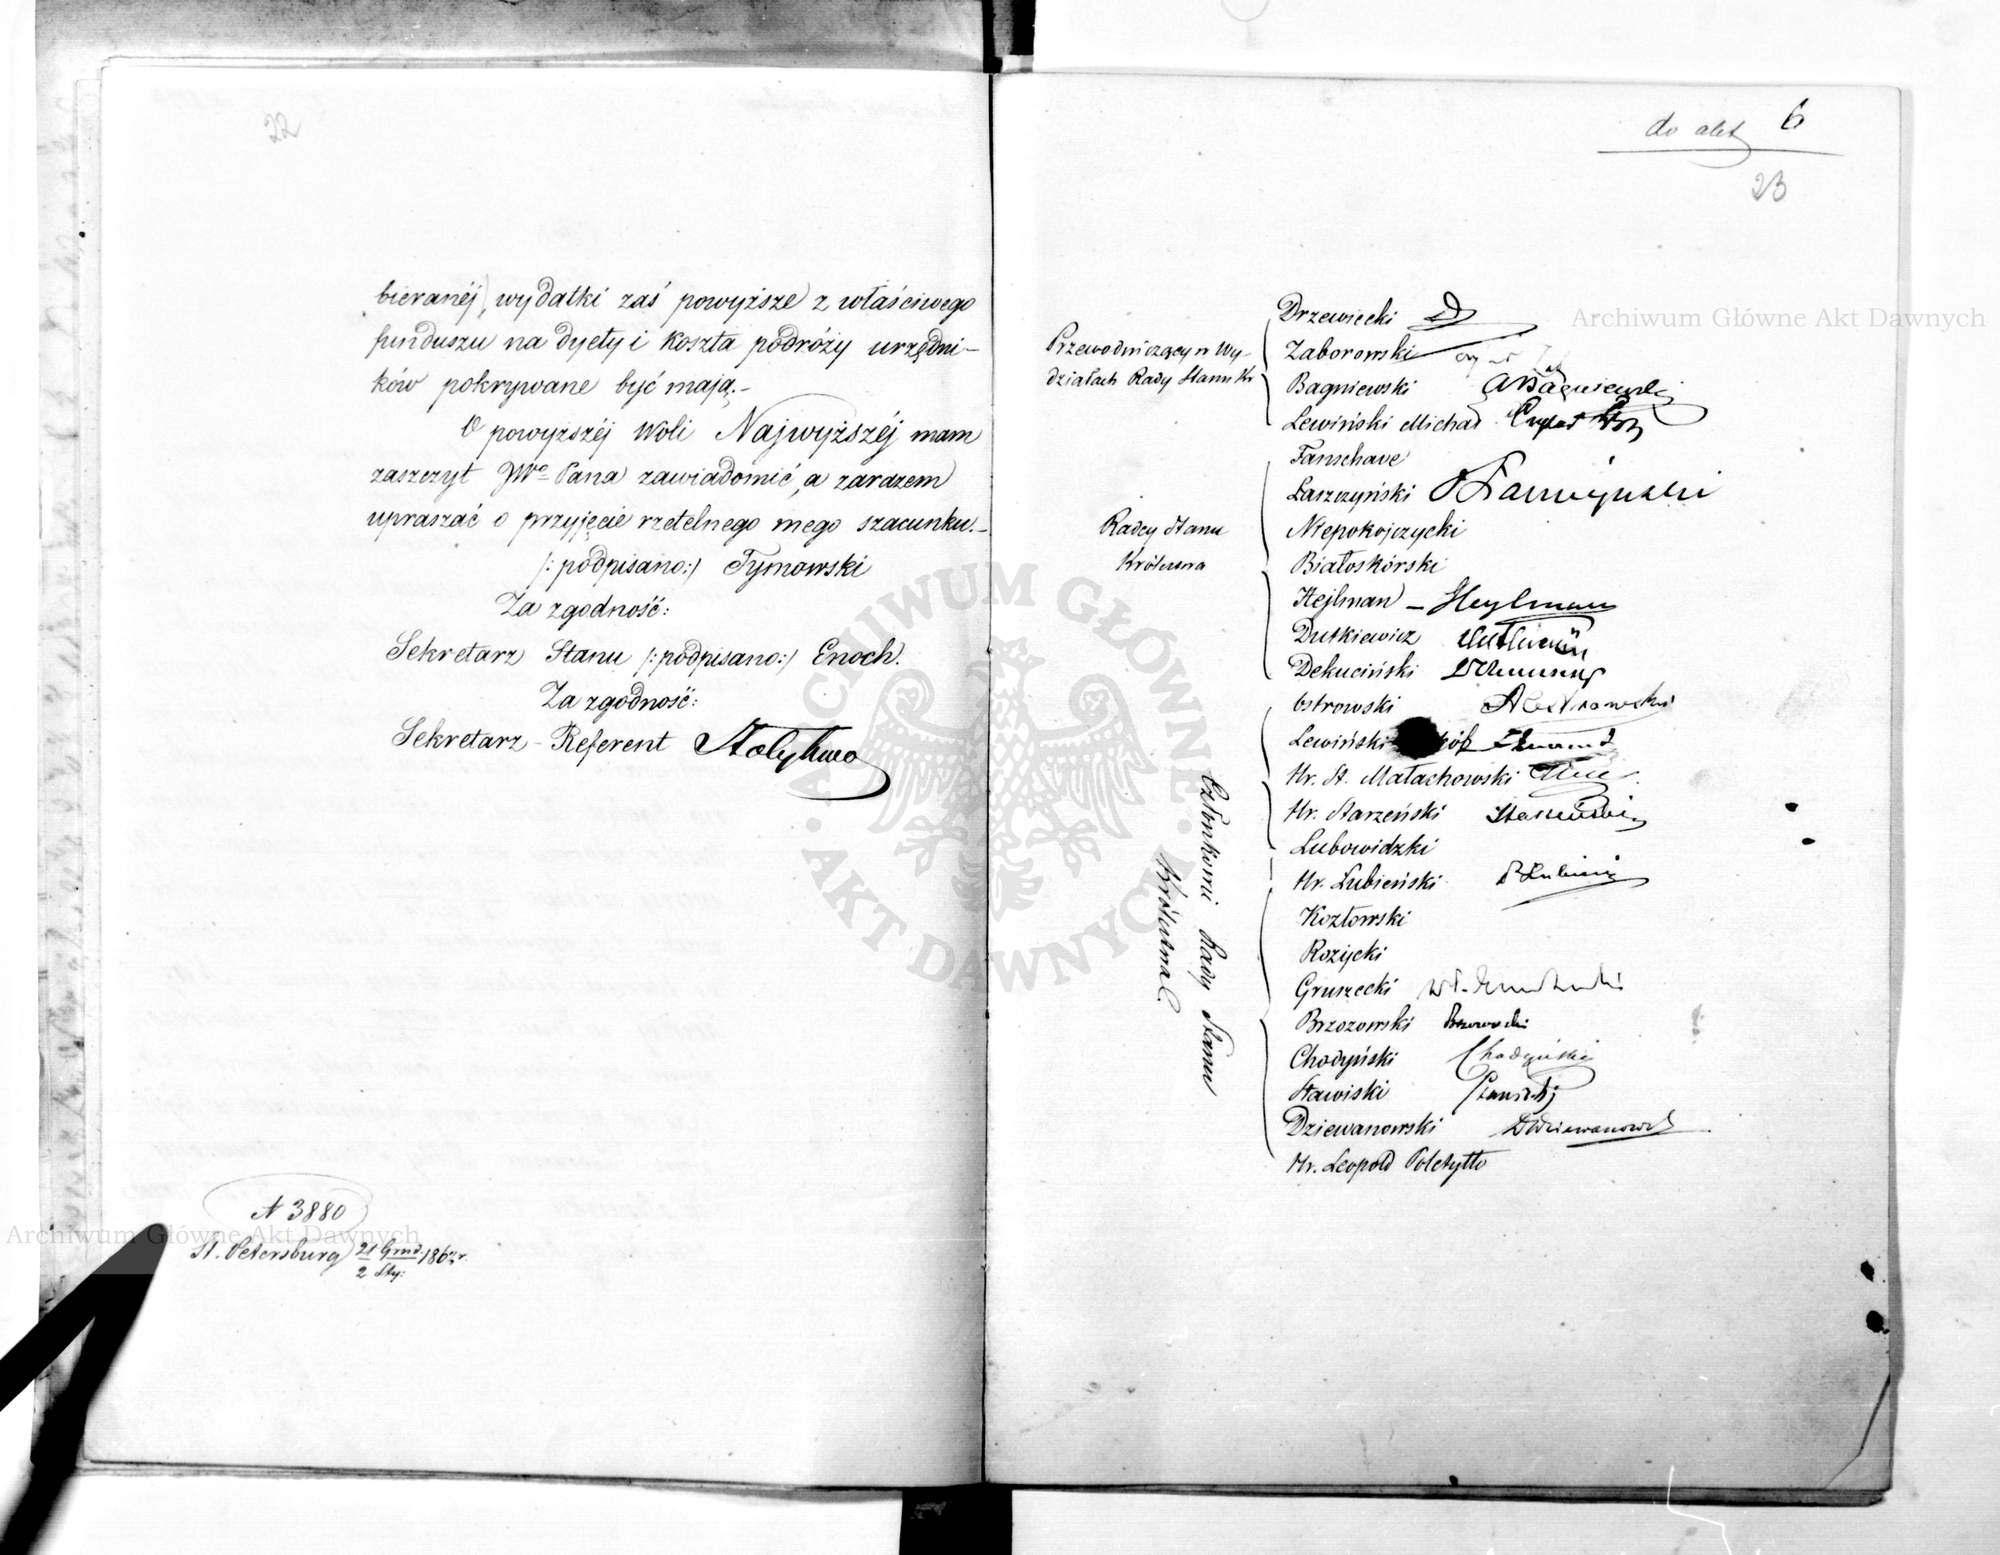 22
bieranéj, wydatki zaś powyższe z właściwego
funduszu na dyety i koszta podróży urzędni-
ków pokrywane być mają.-
O powyższéj Woli Najwyższéj mam
zaszczyt JWo Pana zawiadomić, a zarazem
upraszać o przyjęcie rzetelnego mego szacunku.-
/:podpisano:/ Tymowski
Za zgodność:
Sekretarz Stanu /:podpisano:/ Enoch.
Za zgodność:
Sekretarz-Referent
N 3880
St. Petersburg 21 Grud. 186
2 Sty:
do akt 6
23
Przewodniczący w Wy-
działach Rady Stanu Kr
Drzewiecki
Zaborowski
Bagniewski ABagniewski
Lewiński Michał
Radcy Stanu
Królestwa
Fanschave
Łaszczyński Łaszczyński
Niepokojczycki
Białoskórski
Hejlman - Heylman
Dutkiewicz
Dekuciński
Członkowie Rady Stanu
Królestwa
Ostrowski AOstrowski
Lewiński
Hr. St. Małachowski
Hr. Starzeński Starzeński
Lubowidzki
Hr. Łubieński Łubieński
Kozłowski
Rozycki
Gruszecki
Brzozowski Brzozowski
Chodyński Chodyński
Stawiski
Dziewanowski Dziewanowski
Hr. Leopold Poletyłło
Archiwum Główne Akt Dawnych
Archiwum Główne Akt Dawnych
ARCHIWUM GŁÓWNE AKT DAWNYCH